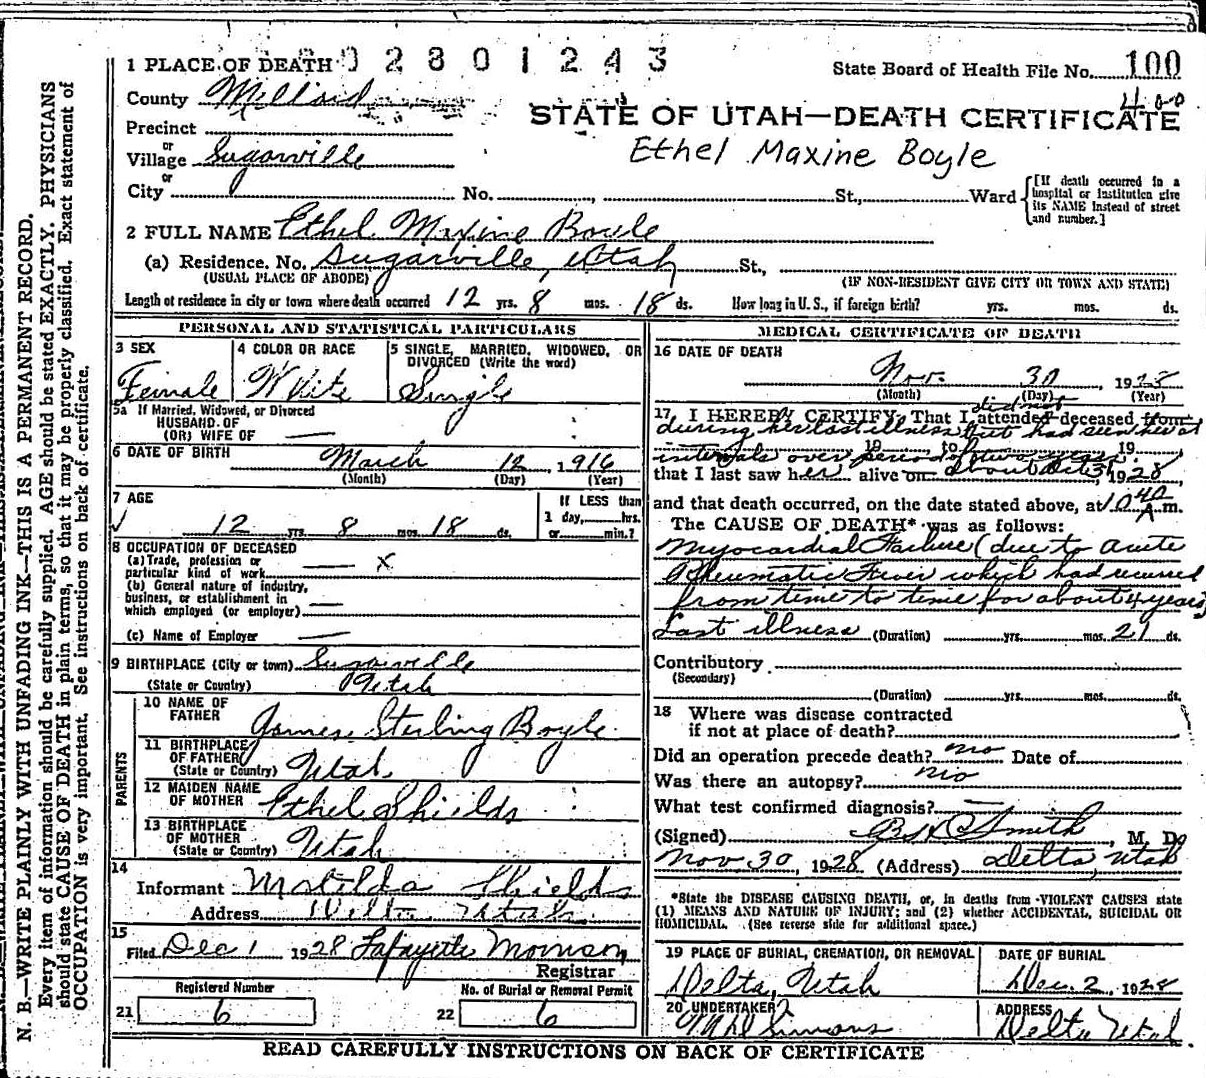 2801243
1 PLACE OF DEATH
State Board of Health File No. 100
County Millard
400
STATE OF UTAH—DEATH CERTIFICATE
Precinct
or
Village Sugarville
Ethel Maxine Boyle
or
City No. St., Ward
[If death occurred in a hospital or institution give its NAME instead of street and number.]
2 FULL NAME Ethel Maxine Boyle
(a) Residence. No. Sugarville, Utah St.,
(USUAL PLACE OF ABODE) (IF NON-RESIDENT GIVE CITY OR TOWN AND STATE)
Length of residence in city or town where death occurred 12 yrs. 8 mos. 18 ds. How long in U. S., if foreign birth? yrs. mos. ds.
PERSONAL AND STATISTICAL PARTICULARS
3 SEX
Female
4 COLOR OR RACE
White
5 SINGLE, MARRIED, WIDOWED, OR DIVORCED (Write the word)
Single
5a If Married, Widowed, or Divorced
HUSBAND OF
(OR) WIFE OF —
6 DATE OF BIRTH March 12, 1916
(Month) (Day) (Year)
7 AGE
12 yrs. 8 mos. 18 ds.
If LESS than
1 day, hrs.
or min.?
8 OCCUPATION OF DECEASED
(a) Trade, profession or
particular kind of work — x
(b) General nature of industry,
business, or establishment in
which employed (or employer) —
(c) Name of Employer —
9 BIRTHPLACE (City or town) Sugarville
(State or Country) Utah
PARENTS
10 NAME OF FATHER James Sterling Boyle
11 BIRTHPLACE OF FATHER
(State or Country) Utah
12 MAIDEN NAME OF MOTHER Ethel Shields
13 BIRTHPLACE OF MOTHER
(State or Country) Utah
14
Informant Matilda Shields
Address Delta Utah
15
Filed Dec 1 1928 Lafayette Morrison
Registrar
Registered Number
21 6
No. of Burial or Removal Permit
22 6
MEDICAL CERTIFICATE OF DEATH
16 DATE OF DEATH
Nov. 30, 1928
(Month) (Day) (Year)
17 I HEREBY CERTIFY, That I did not attended deceased from
during her last illness but had seen her at
intervals over period of two years 19 to 19
that I last saw her alive on about Oct 31, 1928,
and that death occurred, on the date stated above, at 10 40 A m.
The CAUSE OF DEATH* was as follows:
Myocardial Failure (due to acute
Rheumatic Fever which had recurred
from time to time for about 4 years)
Last illness (Duration) yrs. mos. 21 ds.
Contributory
(Secondary)
(Duration) yrs. mos. ds.
18 Where was disease contracted
if not at place of death?
Did an operation precede death? no Date of
Was there an autopsy? no
What test confirmed diagnosis? —
(Signed) Smith, M. D.
Nov 30, 1928 (Address) Delta, Utah
*State the DISEASE CAUSING DEATH, or, in deaths from VIOLENT CAUSES state
(1) MEANS AND NATURE OF INJURY; and (2) whether ACCIDENTAL, SUICIDAL OR
HOMICIDAL. (See reverse side for additional space.)
19 PLACE OF BURIAL, CREMATION, OR REMOVAL
Delta, Utah
DATE OF BURIAL
Dec. 2, 1928
20 UNDERTAKER
Simmons
ADDRESS
Delta Utah
READ CAREFULLY INSTRUCTIONS ON BACK OF CERTIFICATE
N. B.—WRITE PLAINLY WITH UNFADING INK—THIS IS A PERMANENT RECORD.
Every item of information should be carefully supplied. AGE should be stated EXACTLY. PHYSICIANS
should state CAUSE OF DEATH in plain terms, so that it may be properly classified. Exact statement of
OCCUPATION is very important. See instructions on back of certificate.